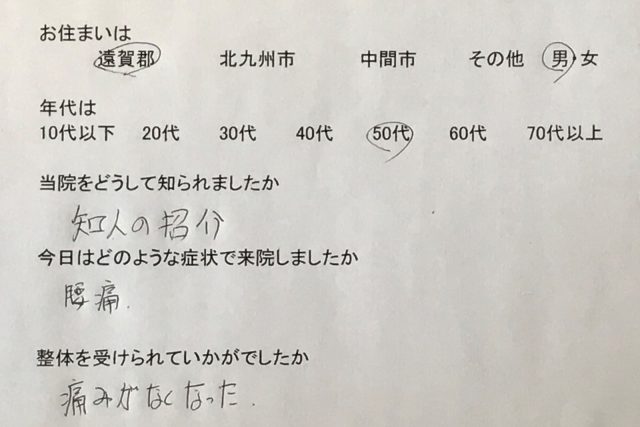 お住まいは
遠賀郡 北九州市 中間市 その他 男・女
年代は
10代以下 20代 30代 40代 50代 60代 70代以上
当院をどうして知られましたか
知人の招介
今日はどのような症状で来院しましたか
腰痛.
整体を受けられていかがでしたか
痛みがなくなった.